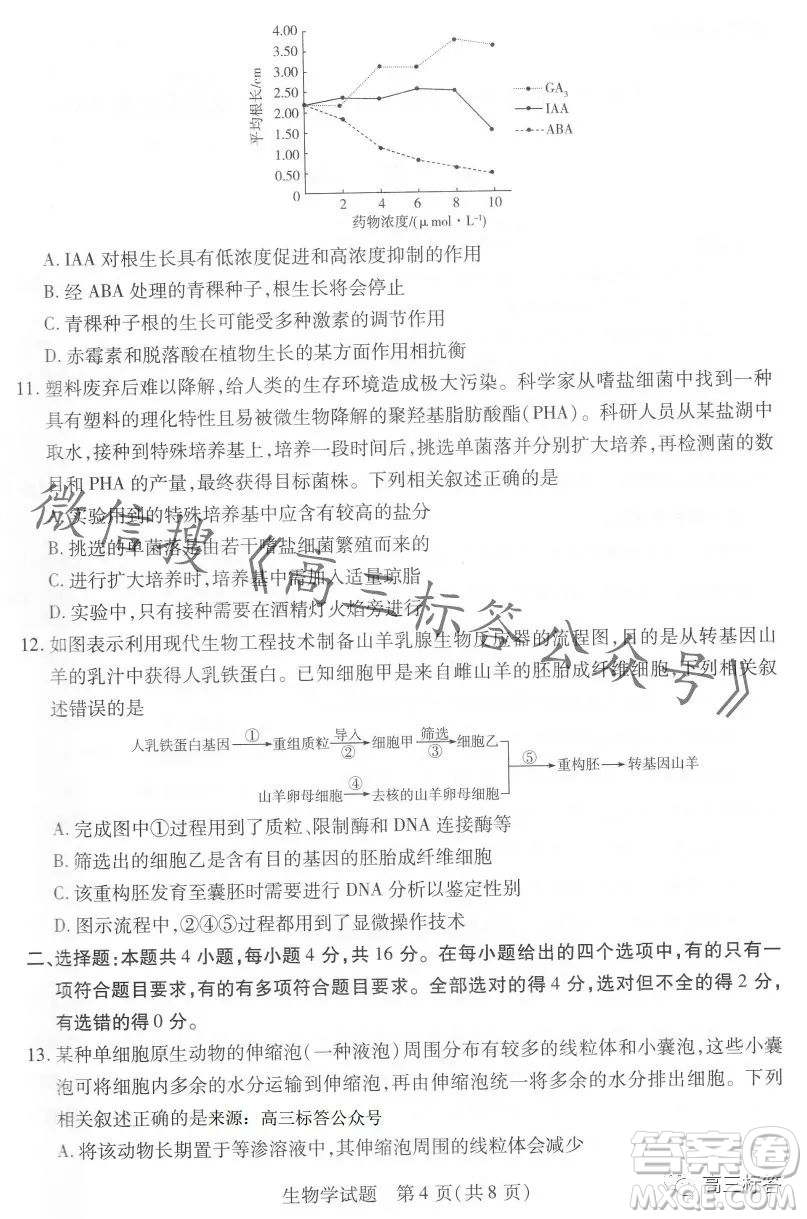 4.00
3.50
3.00
2.50
2.00
1.50
1.00
0.50
0
平均根长/cm
2 4 6 8 10
药物浓度/(μmol·L-1)
GA3
IAA
ABA
A. IAA 对根生长具有低浓度促进和高浓度抑制的作用
B. 经 ABA 处理的青稞种子,根生长将会停止
C. 青稞种子根的生长可能受多种激素的调节作用
D. 赤霉素和脱落酸在植物生长的某方面作用相抗衡
11. 塑料废弃后难以降解,给人类的生存环境造成极大污染。科学家从嗜盐细菌中找到一种
具有塑料的理化特性且易被微生物降解的聚羟基脂肪酸酯(PHA)。科研人员从某盐湖中
取水,接种到特殊培养基中,培养一段时间后,挑选单菌落分别扩大培养,再检测菌的数
目和 PHA 的产量,最终获得目标菌株。下列相关叙述正确的是
A. 实验用到的特殊培养基中应含有较高的盐分
B. 挑选的单菌落是由若干嗜盐细菌繁殖而来的
C. 进行扩大培养时,培养基中需加入适量琼脂
D. 实验中,只有接种需要在酒精灯火焰旁进行
12. 如图表示利用现代生物工程技术制备山羊乳腺生物反应器的流程图,目的是从转基因山
羊的乳汁中获得人乳铁蛋白。已知细胞甲是来自雌山羊的胚胎成纤维细胞,下列相关叙
述错误的是
人乳铁蛋白基因 ① 重组质粒 导入 ② 细胞甲 筛选 ③ 细胞乙
⑤ 重构胚 转基因山羊
山羊卵母细胞 ④ 去核的山羊卵母细胞
A. 完成图中①过程用到了质粒、限制酶和 DNA 连接酶等
B. 筛选出的细胞乙是含有目的基因的胚胎成纤维细胞
C. 该重构胚发育至囊胚时需要进行 DNA 分析以鉴定性别
D. 图示流程中,②④⑤过程用到了显微操作技术
二、选择题:本题共 4 小题,每小题 4 分,共 16 分。在每小题给出的四个选项中,有的只有一
项符合题目要求,有的有多项符合题目要求。全部选对的得 4 分,选对但不全的得 2 分,
有选错的得 0 分。
13. 某种单细胞原生动物的伸缩泡(一种液泡)周围分布有较多的线粒体和小囊泡,这些小囊
泡可将细胞内多余的水分运输到伸缩泡中,再由伸缩泡统一将多余的水分排出细胞。下列
相关叙述正确的是来源: 高三标答公众号
A. 将该动物长期置于等渗溶液中,其伸缩泡周围的线粒体会减少
生物学试题 第 4 页(共 8 页)
微信搜《高三标答公众号》
高三标答
答案圈
MXQE.COM